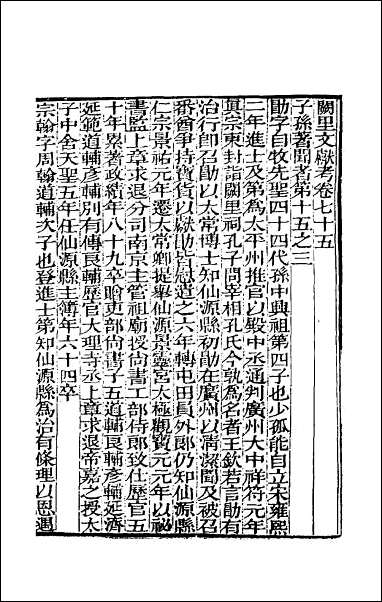 闕里文獻考卷七十五
子孫著聞者第十五之三
勖字自牧先聖四十四代孫中興祖第四子也少孤能自立宋雍熙
二年進士及第為太平州推官以殿中丞通判廣州大中祥符元年
真宗東封詣闕里祠孔子問宰相孔氏今孰為名者王欽若言勖有
治行卽召勖以太常博士知仙源縣初勖在廣州以淸潔聞及被召
番酋爭持寶貨以獻勖皆慰遣之六年轉屯田員外郎仍知仙源縣
仁宗景祐元年遷太常卿提舉仙源景靈宮太極觀寶元元年以祕
書監上章求退分司南京主管祖廟授尚書工部侍郎致仕歷官五
十年累著政績年八十九卒贈吏部尚書子五道輔良輔彥輔延濟
延範道輔彥輔別有傳良輔歷官大理寺丞上章求退帝嘉之授太
子中舍天聖五年任仙源縣主簿年六十四卒
宗翰字周翰道輔次子也登進士第知仙源縣為治有條理以恩遇